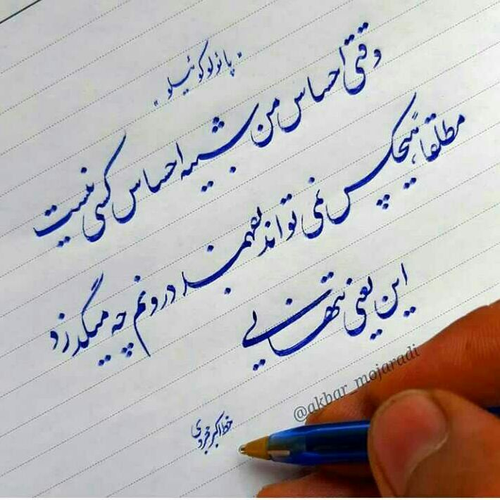 . پائولو کوئیلو .
وقتی احساس من شبیه احساس کسی نیست
مطلقا هیچکس نمی تواند بفهمد درونم چه میگذرد
این یعنی تنهایی
@akbar_mojaradi
خط اکبر مجردی